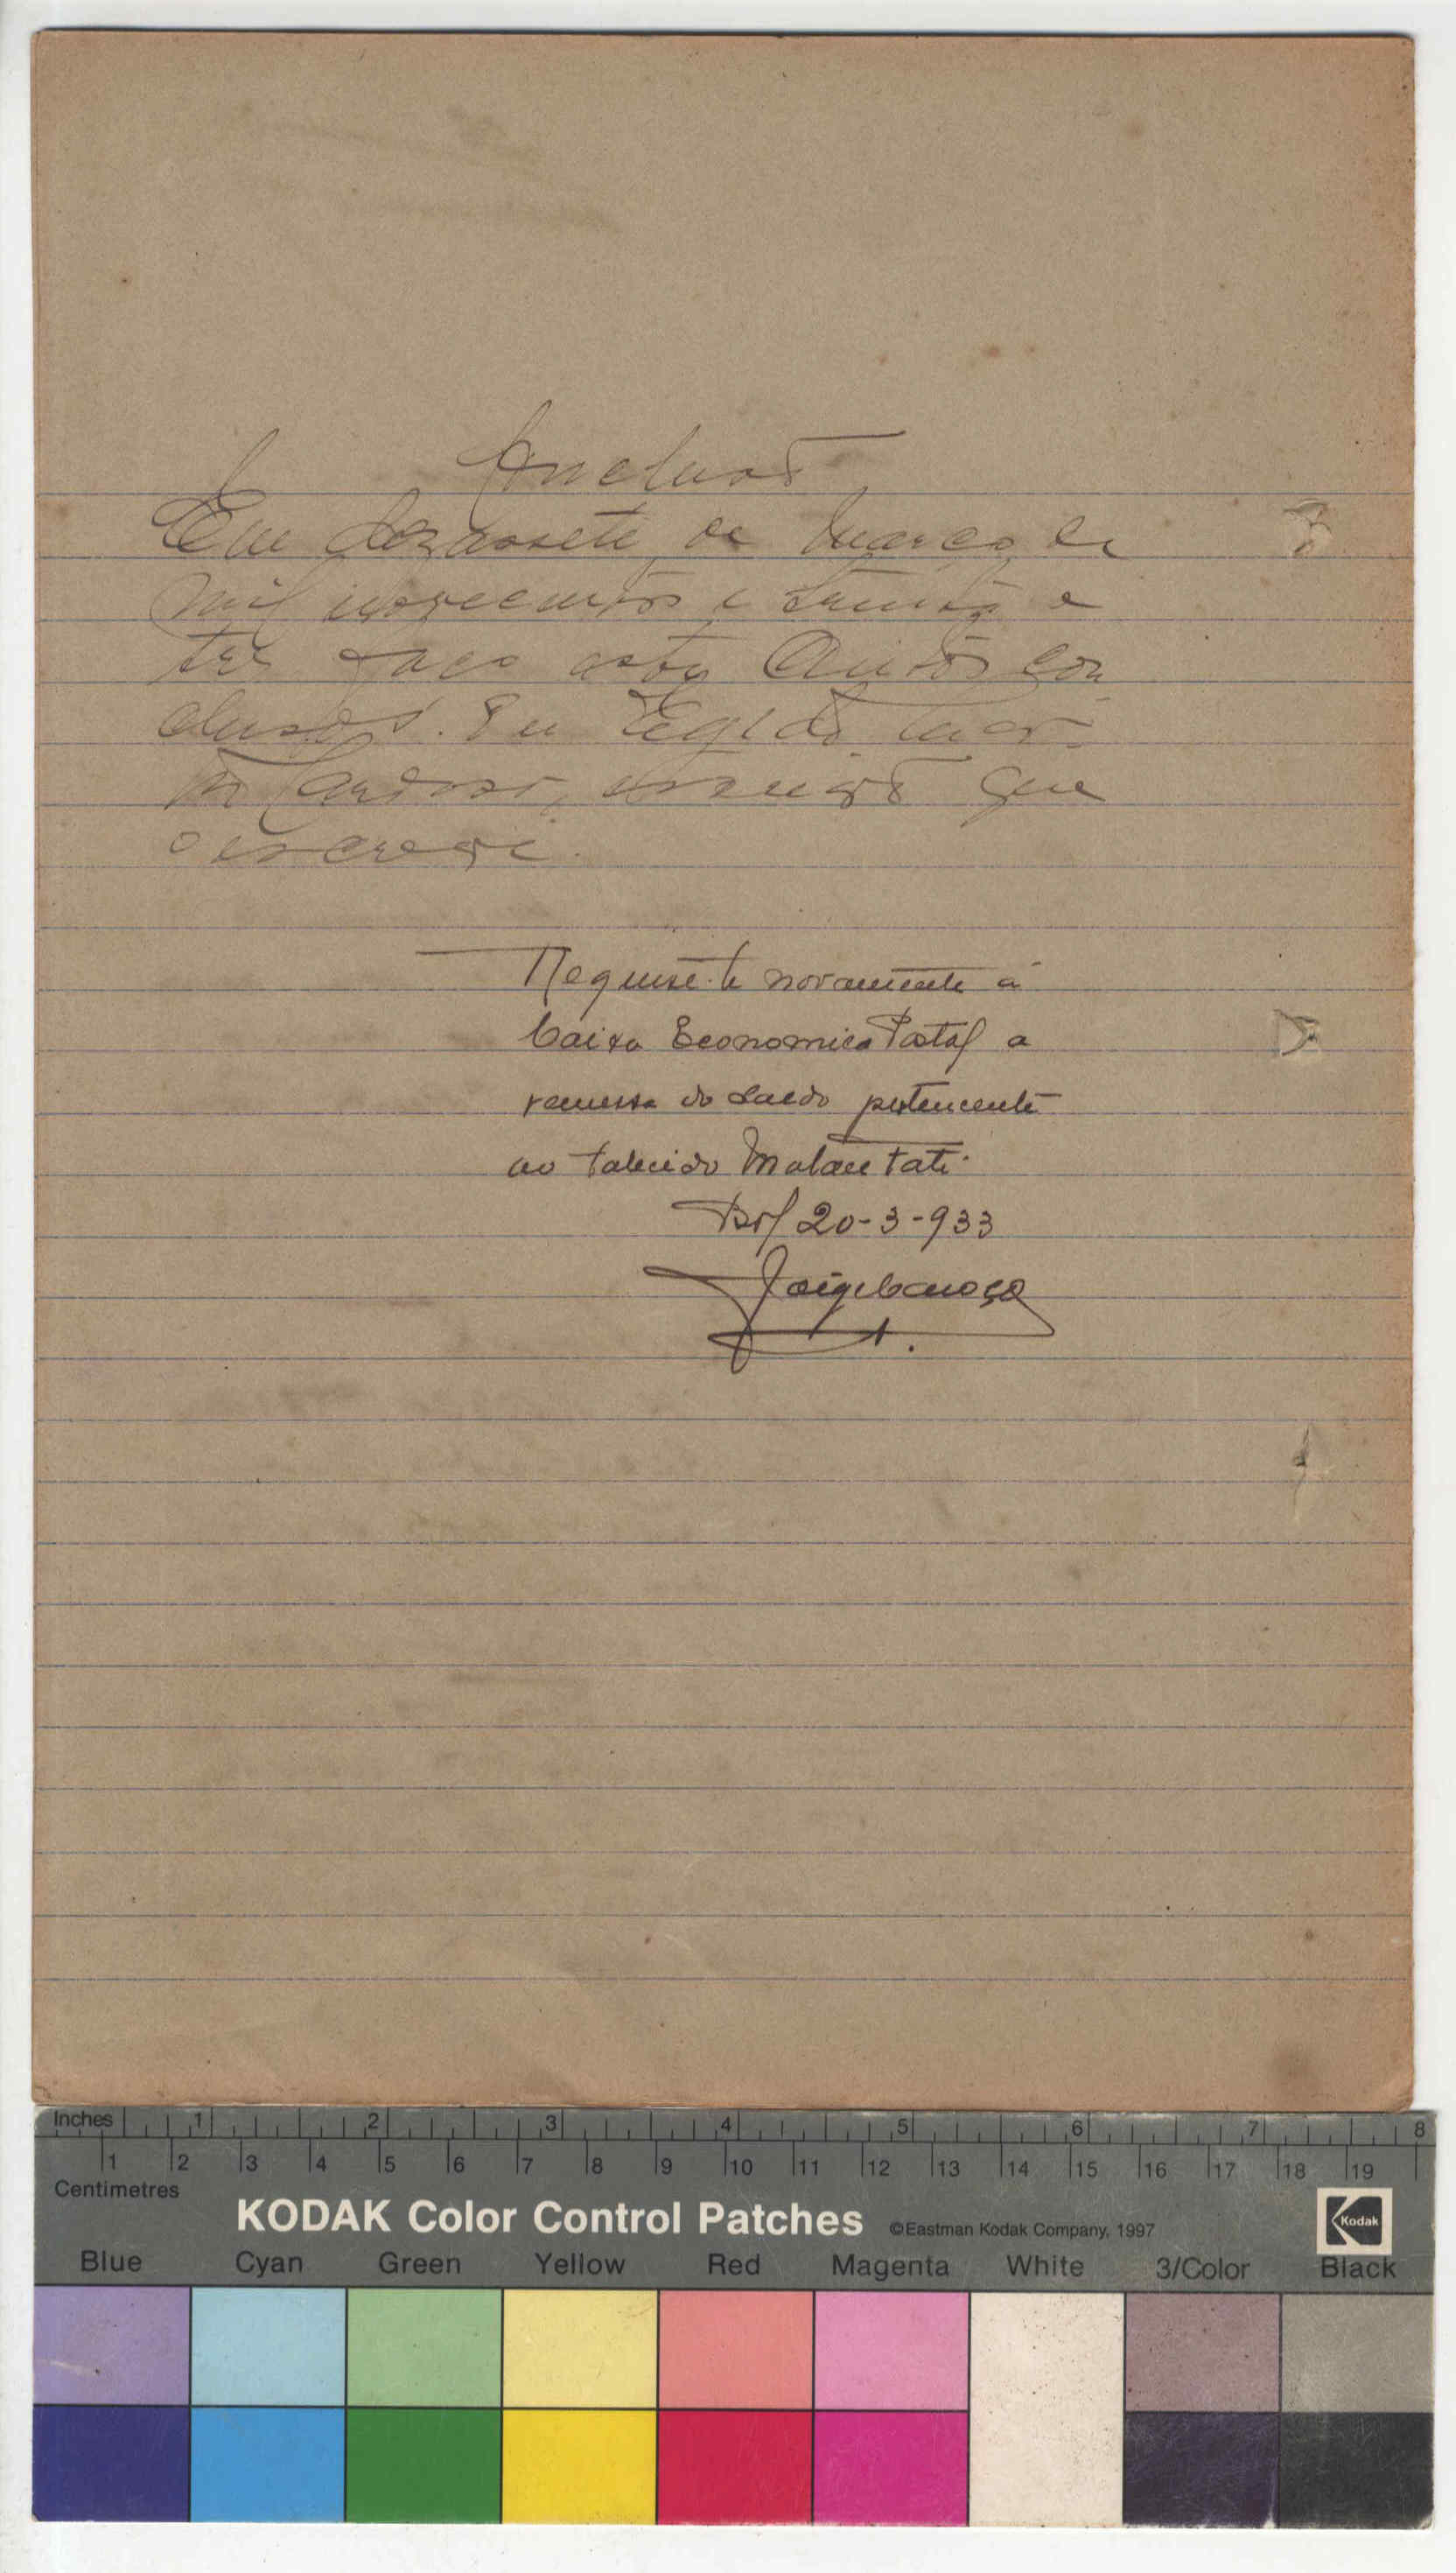 Conclusão
Em dezassete de Março de
mil novecentos e trinta e
três faço estes Autos con
clusos. Eu Egidio
Cardoso, escrivão que
o escrevi.
Requisite-se novamente á
Caixa Economica Postal a
remessa do saldo pertencente
ao falecido
20-3-933
Inches 1 2 3 4 5 6 7 8
1 2 3 4 5 6 7 8 9 10 11 12 13 14 15 16 17 18 19
Centimetres
KODAK Color Control Patches ©Eastman Kodak Company, 1997 Kodak
Blue Cyan Green Yellow Red Magenta White 3/Color Black